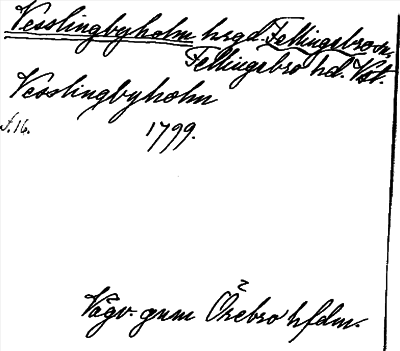 Vesslingbyholm hrgd. Fellingsbro sn,
Fellingsbro hd. Vst.
Vesslingbyholm
f. 16. 1799.
Vägv. gnm Örebro hfdm.